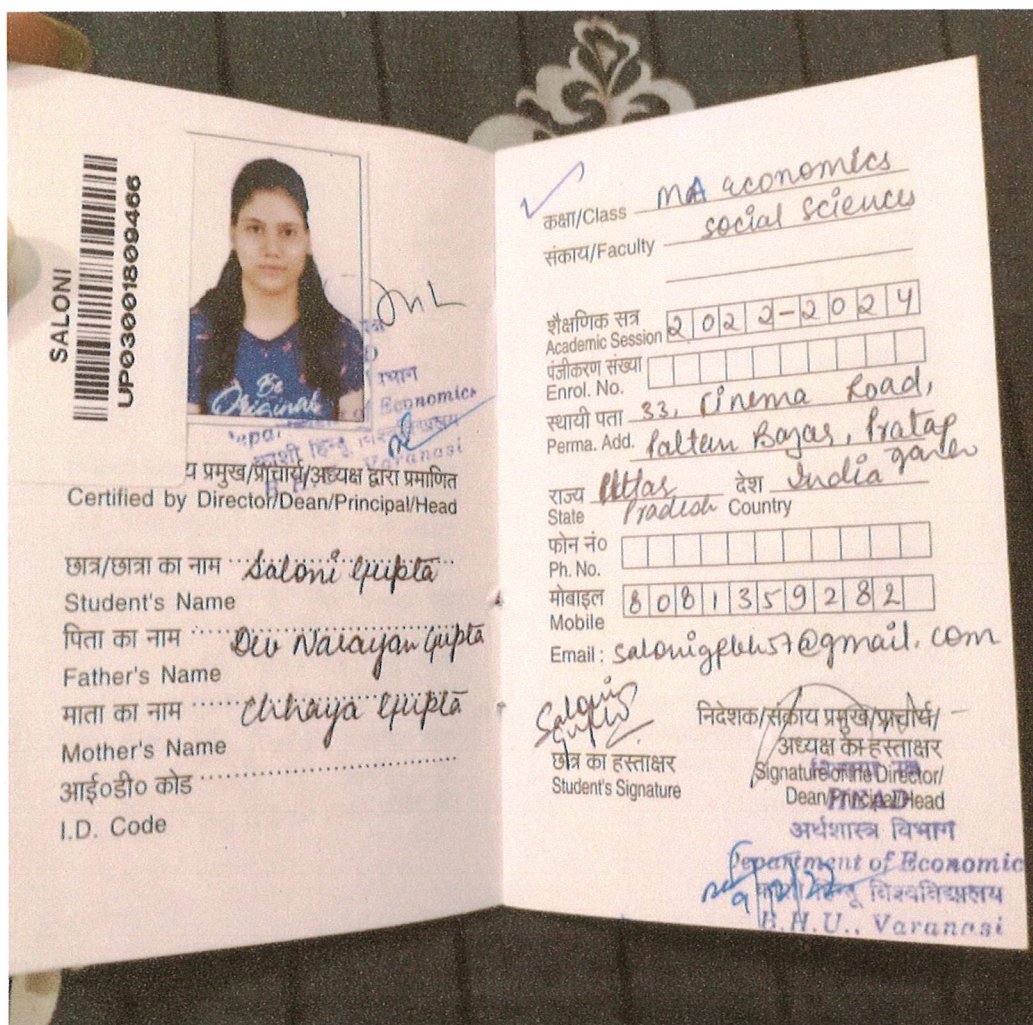 SALONI
UP03001809466
Be
Original
Economics
काशी हिन्दू विश्वविद्यालय
Varanasi
प्रमुख/प्राचार्य/अध्यक्ष द्वारा प्रमाणित
Certified by Director/Dean/Principal/Head
छात्र/छात्रा का नाम Saloni Gupta
Student's Name
पिता का नाम Dev Narayan Gupta
Father's Name
माता का नाम Chhaya Gupta
Mother's Name
आई०डी० कोड
I.D. Code
कक्षा/Class MA economics
संकाय/Faculty social sciences
शैक्षणिक सत्र
Academic Session 2022-2024
पंजीकरण संख्या
Enrol. No.
स्थायी पता 33, Cinema Road,
Perma. Add. Paltan Bazar, Pratap
राज्य Uttar देश India
State Pradesh Country
फोन नं०
Ph. No.
मोबाइल 8081359282
Mobile
Email : @gmail.com
Saloni
Gupta
छात्र का हस्ताक्षर
Student's Signature
निदेशक/संकाय प्रमुख/प्राचार्य/
अध्यक्ष का हस्ताक्षर
Signature of the Director/
Dean/Principal/Head
HEAD
अर्थशास्त्र विभाग
Department of Economic
हिन्दू विश्वविद्यालय
B.H.U., Varanasi